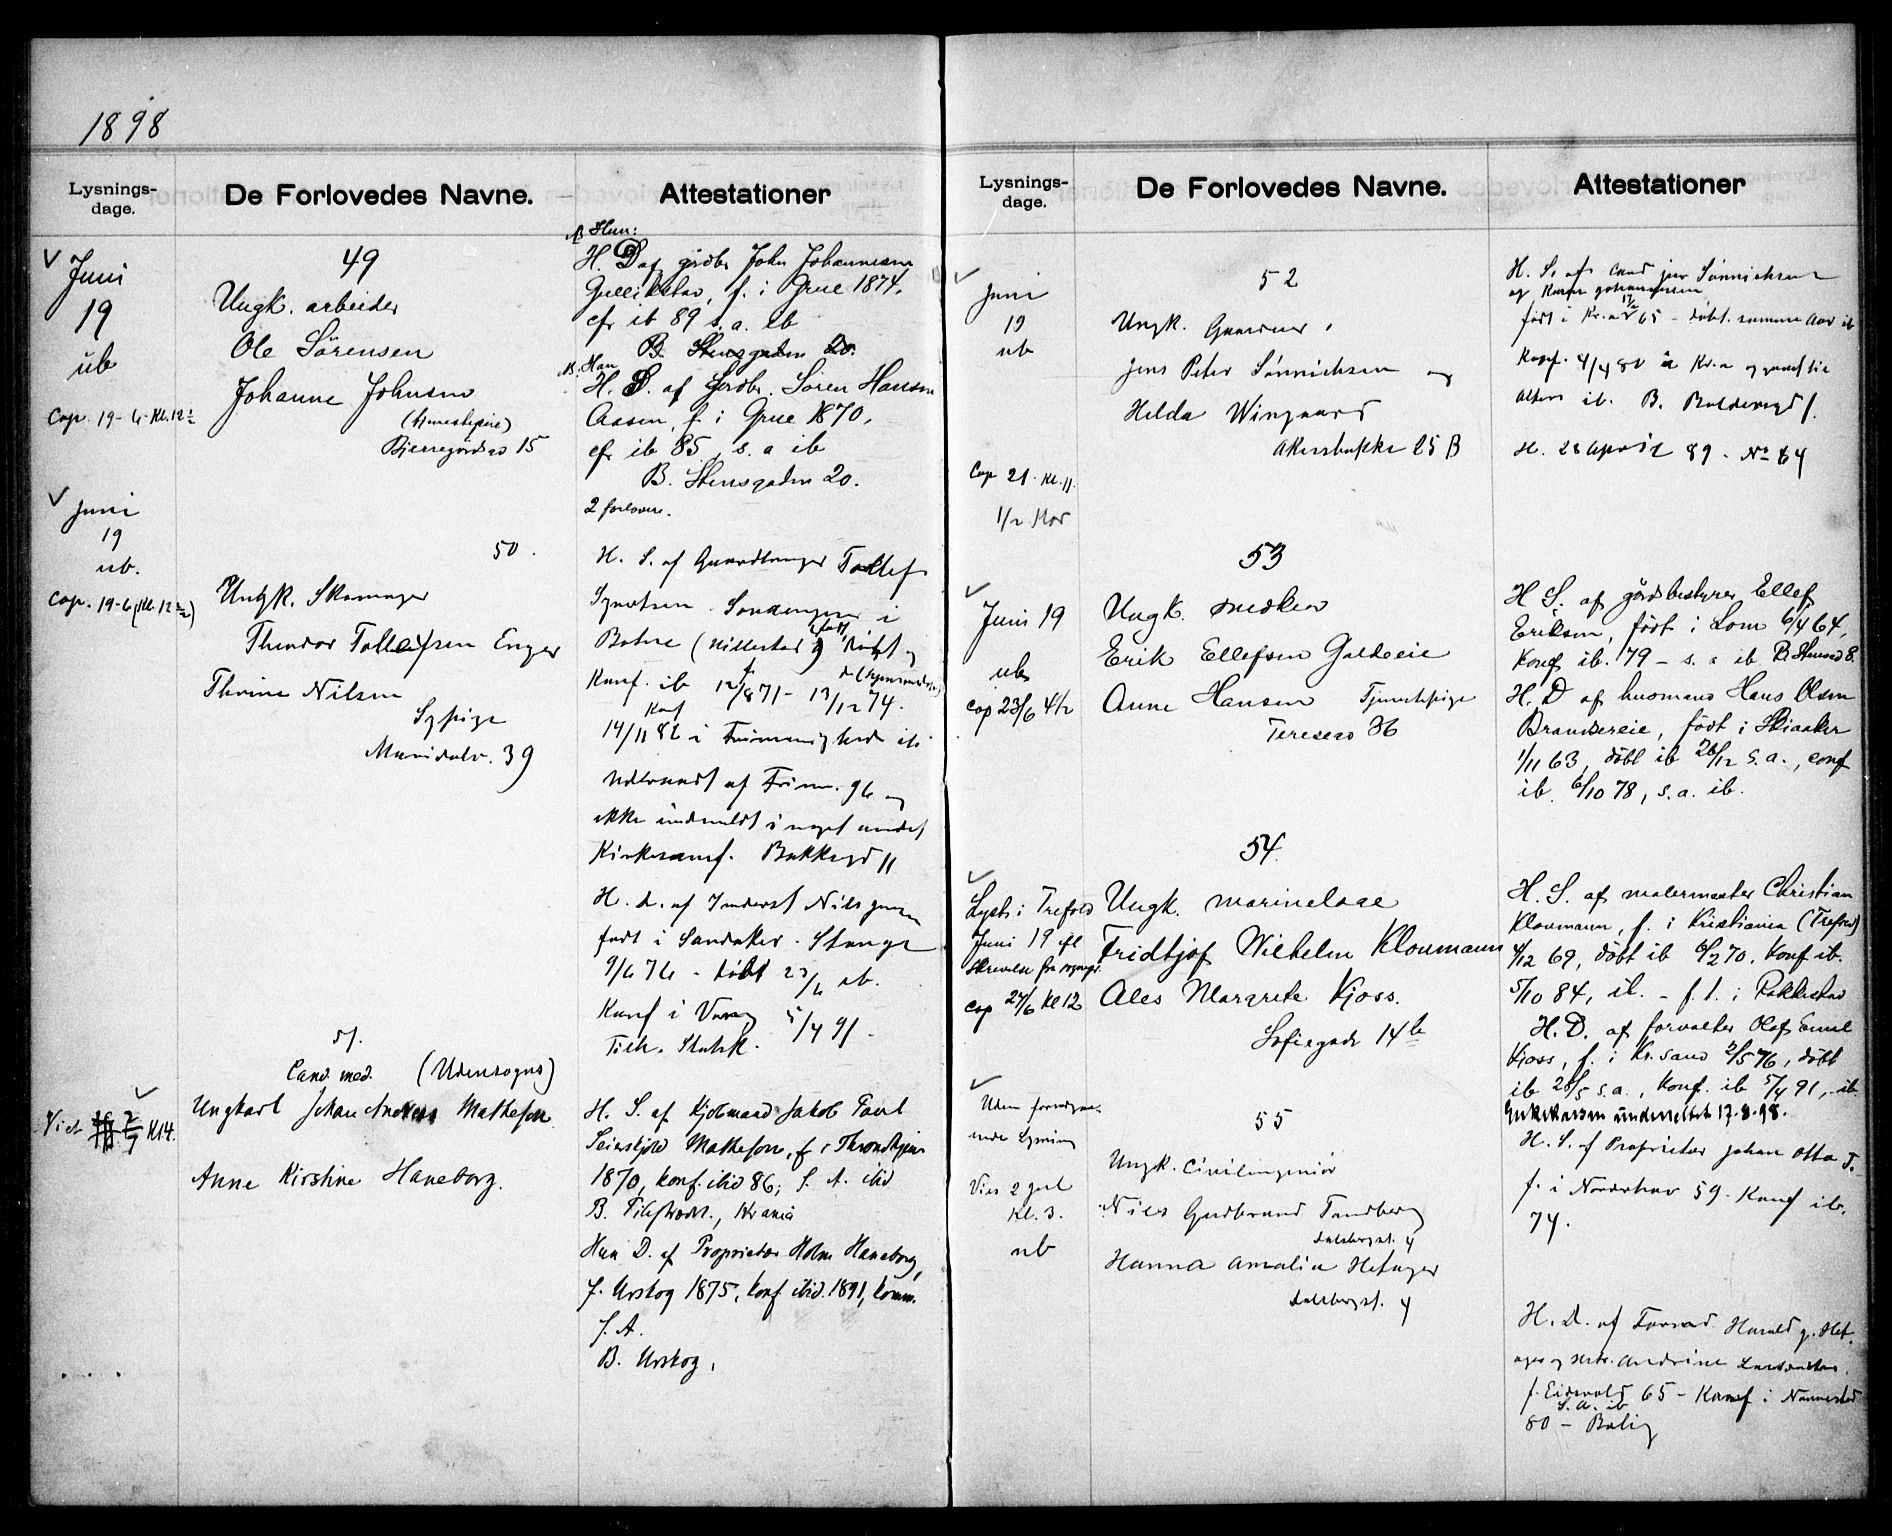 1898
Lysnings-
dage.
De Forlovedes Navne.
Attestationer
Juni
19
ub
Cop. 19-6-Kl.12½
49
Ungk. arbeider
Ole Sörensen
Johanne Johnsen
15
Hun:
H. D af Johannesen
f. i Grue 1874,
cfr ib 89 s. a. ib
B. Stensgaden 20.
Han
H. S. af Sören Hansen
Aasen, f. i Grue 1870,
cfr ib 85, s. a ib
B. Stensgaden 20.
2 forlovere.
Juni
19
ub.
Cop. 19-6 (Kl. 12½)
50.
Ungk. Skomager
Theodor Tollefsen Enger
Thrine Nilsen
Sypige
Maridalv. 39
H. S. af Tollef
i
Botne (Hillestad) døbt og
Konf. ib 12/8 71 - 17/12 74.
Konf
14/11 86 i Frimenighed ib
Udtraadt af Frim. 96 og
ikke indmeldt i noget andet
Kirkesamf. Bakkegd 11
H. D. af Inderst Nils
født i Sandaker. Stange
9/6 76 - døbt 23/6 ib.
Konf i 5/4 91 -
51.
Cand. med. (Udensogns)
Viet Kl 4.
Ungkarl Johan Matheson
Anne Kirstine Haneborg.
H. S. af Kjøbmand Jakob Povl
Matheson, f i Throndhjem
1870, konf. ibid 86; s. A. ibid
B. Krania
Hun D. af Proprietær Holm Haneborg,
f. Urskog 1875, konf ibid. 1891, komm.
s. A.
B. Urskog.
Lysnings-
dage.
De Forlovedes Navne.
Attestationer
Juni
19
ub
Cop 21. Kl. 11.
52
Ungk. Gaardbr.
Jens Peter Sønnichsen og
Hilda Wingaard
Akersbakke 25 B
H. S. af Cand jur Sønnichsen
og Karen Johannesen
født i Kr.a 65 - døbt. samme Aar ib
Konf. 4/4 80 i Kr.a og
Alters ib. B.
H. 28 April 89. No 64
53
Juni 19
ub
Cop 23/6 4½
Ungk. snedker
Erik Ellefsen Galdeeie
Anne Hansen Tjenestepige
Theresesgd 36
H S. af gårdsbestyrer Ellef
Eriksen, født i Lom 6/4 64,
Konf ib. 79 - s. a ib B. 8.
H. D af husmand Hans Olsen
Brandereie, født i Skiaaker
1/11 63, døbt ib 26/12 s. a., conf
ib. 6/10 78, s. a. ib.
54.
Lyst i Trefold
Juni 19 ifl
Skrivelse fra sognepr.
Cop 27/6 Kl 12
Ungk. marinelæge
Fridtjof Wilhelm Kloumann
Ales Margrete Kjoss.
Sofiegade 14 b
H. S. af malermester Christian
Kloumann, f. i Kristiania (Trefold)
4/12 69, døbt ib 6/2 70. Konf ib.
5/10 84, ib. - f. t. i Rakkestad
H. D. af forvalter Olaf Emil
Kjoss, f. i Kr.sand 2/5 76, døbt
ib 28/5 s. a., konf. ib 5/4 91, ib.
Enkekassen underrettet 17.8.98.
Uden foregaa-
ende Lysning
Viet 2 Juli
Kl. 3.
ub
55
Ungk. Civilingeniør
Nils Gudbrand Tandberg
Dalsbergst. 4
Hanna Amalia Hefager
Dalsbergst. 4
H. S. af Proprietær Johan Otto T.
f. i Norderhov 59. Konf ib.
74.
H. D. af Harald
Andrine
f. Eidsvold 65 - Konf i Nannestad
80 - s. a. ib